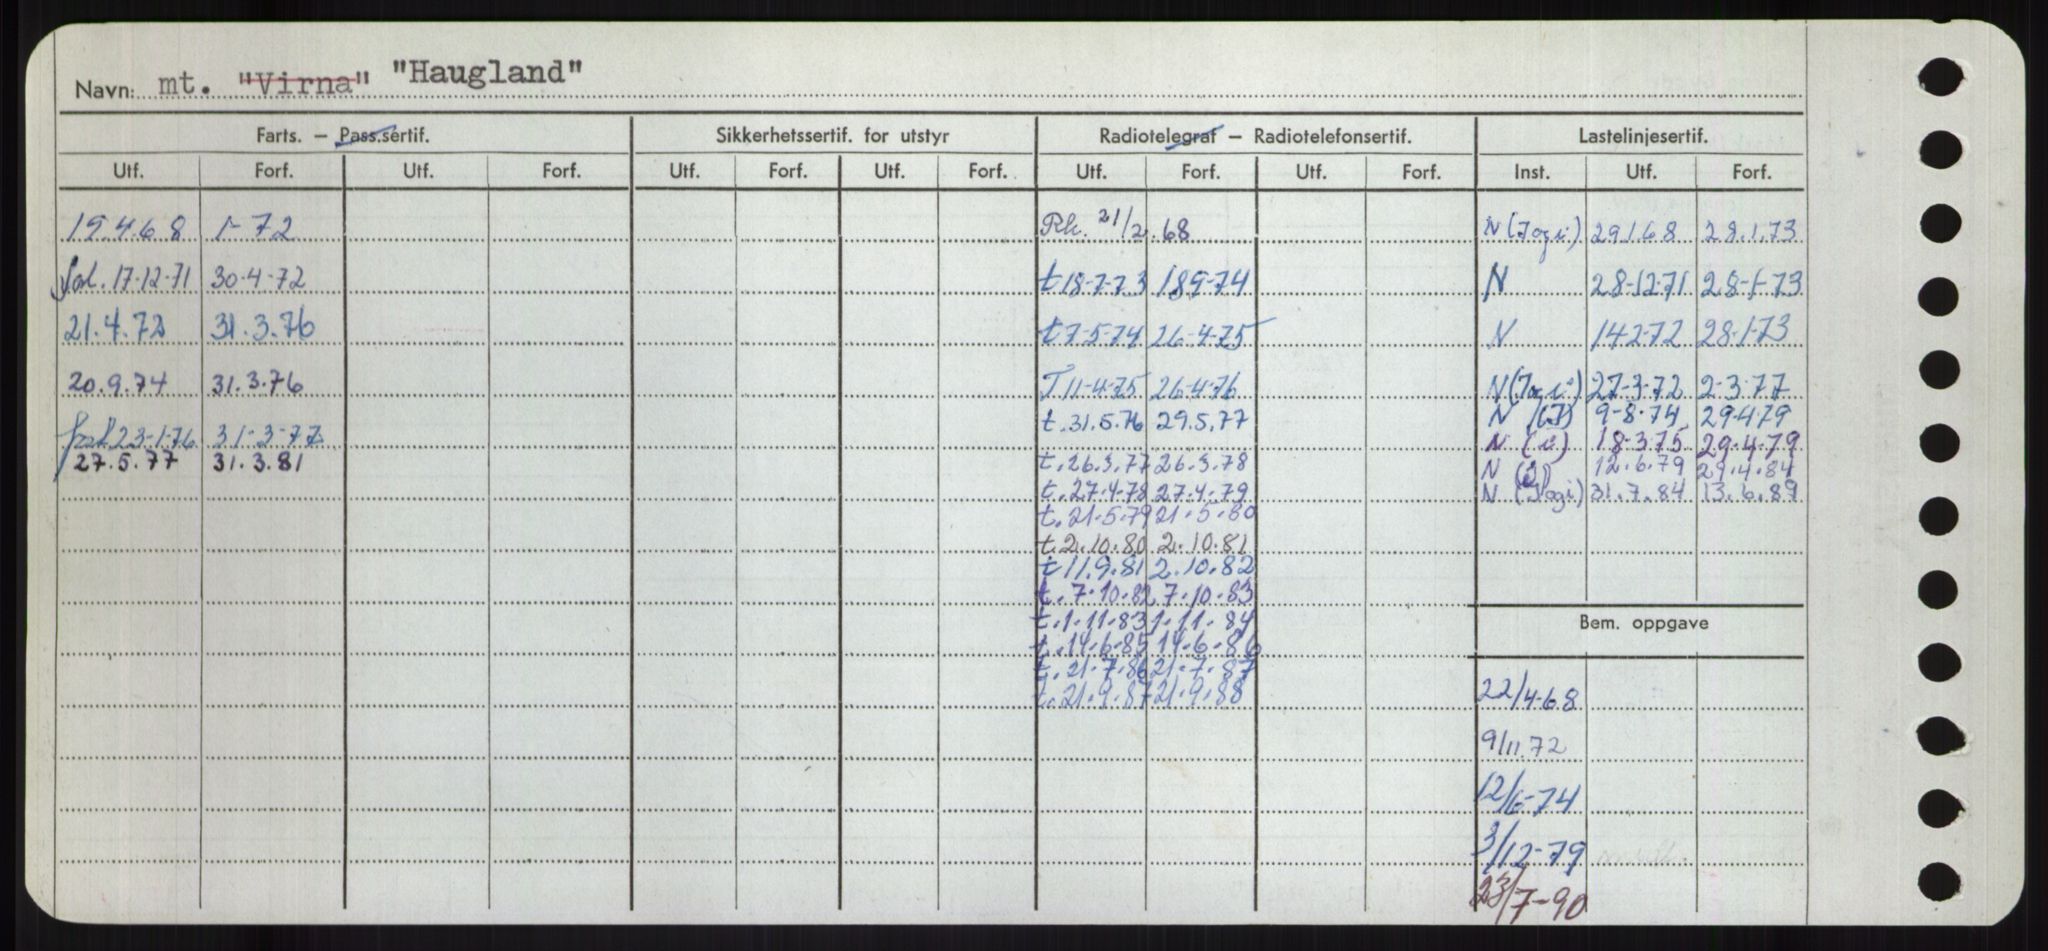 Navn: mt. "Virna" "Haugland"
Farts. — Pass.sertif. Sikkerhetssertif. for utstyr Radiotelegraf — Radiotelefonsertif. Lastelinjesertif.
Utf. Forf. Utf. Forf. Utf. Forf. Utf. Forf. Utf. Forf. Utf. Forf. Inst. Utf. Forf.
19.4.68 1-72 Rk. 21/2.68 N (Jogi) 29.1.68 28.1.73
17-12-71 30-4-72 t 18-7-73 18-9-74 N 28-12-71 28-1-73
21.4.72 31.3.76 t 7-5-74 26-4-75 N 14-2-72 28-1-73
20.9.74 31.3.76 T 11-4-75 26-4-76 N (Jogi) 27-3-72 2-3-77
t. 31.5.76 29.5.77 N (J) 9-8-74 29-4-79
23-1-76 31-3-77 N (i) 18-3-75 29-4-79
27.5.77 31.3.81 t. 26.3.77 26.3.78 N (J) 12.6.79 29.4.84
t. 27.4.78 27.4.79 N (Jogi) 31.7.84 13.6.89
t. 21.5.79 21.5.80
t. 2.10.80 2.10.81
t 11.9.81 2.10.82
t. 7.10.82 7.10.83
t. 1.11.83 1.11.84
Bem. oppgave
t. 14.6.85 14.6.86
t. 21.7.86 21.7.87
t. 21.9.87 21.9.88
22/4-68
9/11.72
12/6-74
3/12-79
23/7-90